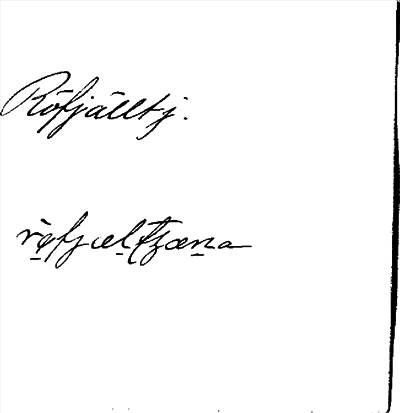 Röfjälltj.
rö̀fjælţʒæṇa